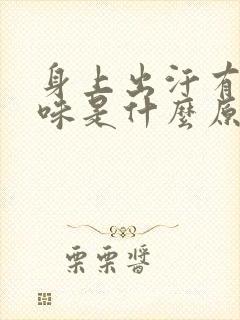 身上出汗有
味是什麼原
栗栗醬